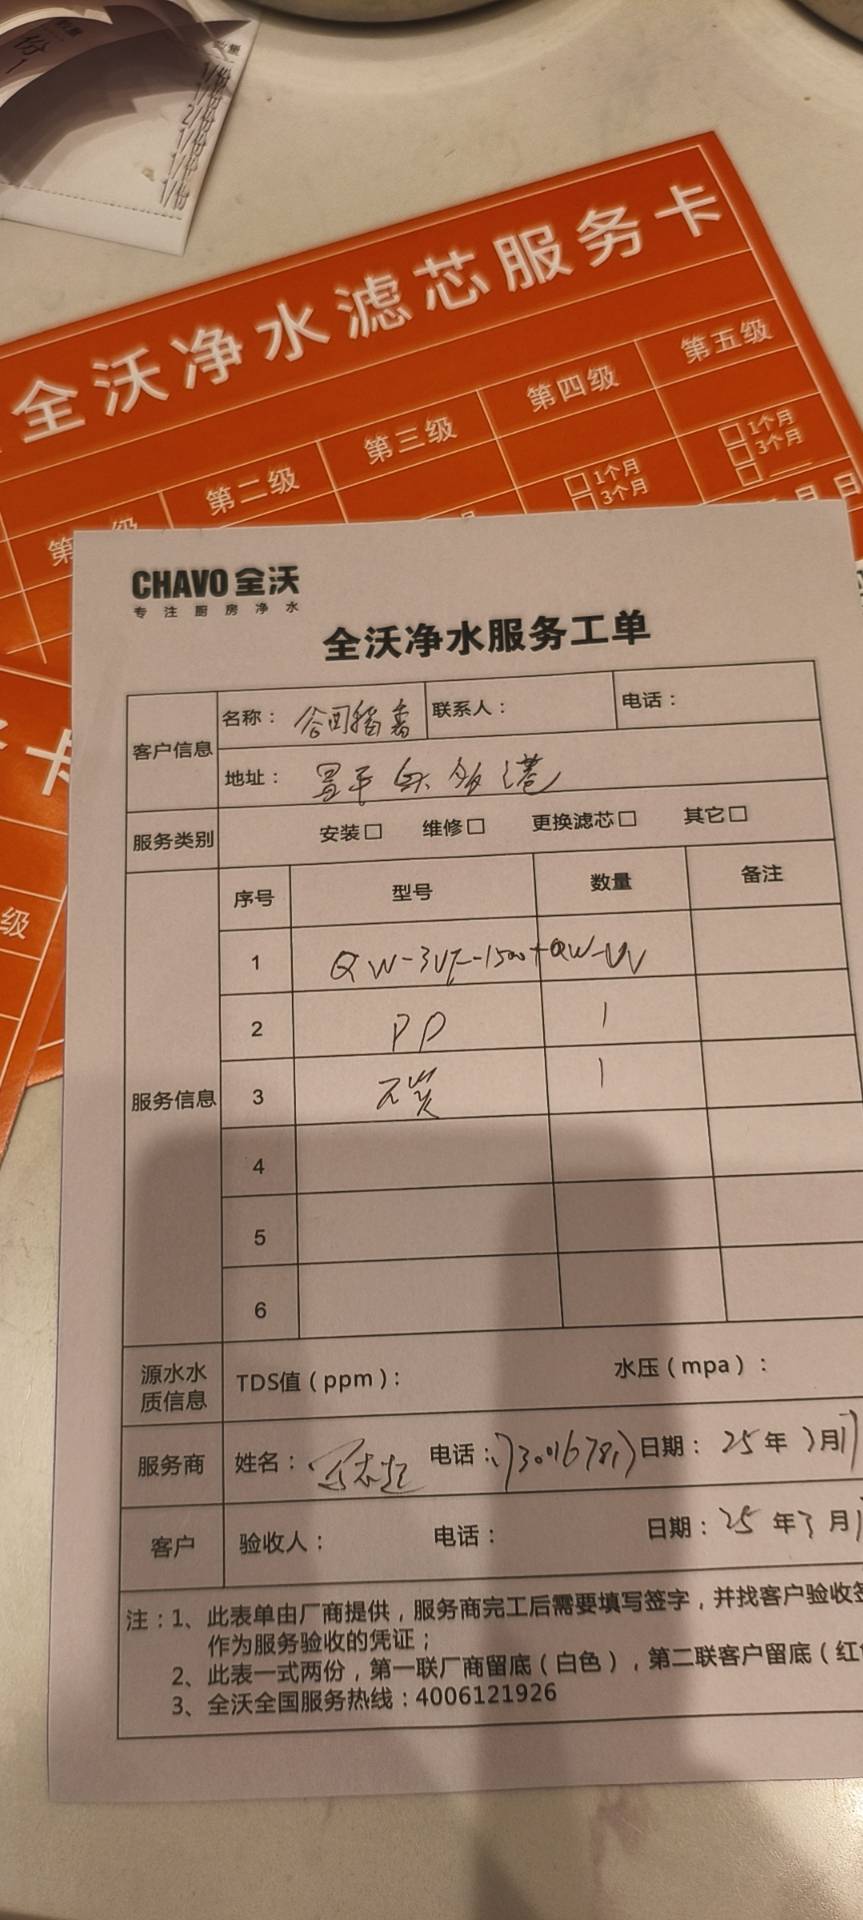 1/份
2/份
1/份
1/份
1/份
全沃净水滤芯服务卡
第二级
第三级
第四级
第五级
1个月
3个月
1个月
3个月
月 日
级
CHAVO 全沃
专注厨房净水
全沃净水服务工单
客户信息
名称：
联系人：
电话：
地址：
服务类别
安装□ 维修□ 更换滤芯□ 其它□
服务信息
序号 型号 数量 备注
1 QW-3UF-1500+QW-UV
2 PP 1
3 1
4
5
6
源水水质信息
TDS值（ppm）： 水压（mpa）：
服务商 姓名： 电话： 日期： 25年 月
客户 验收人： 电话： 日期：25年3月
注：1、此表单由厂商提供，服务商完工后需要填写签字，并找客户验收签
作为服务验收的凭证；
2、此表一式两份，第一联厂商留底（白色），第二联客户留底（红
3、全沃全国服务热线：4006121926